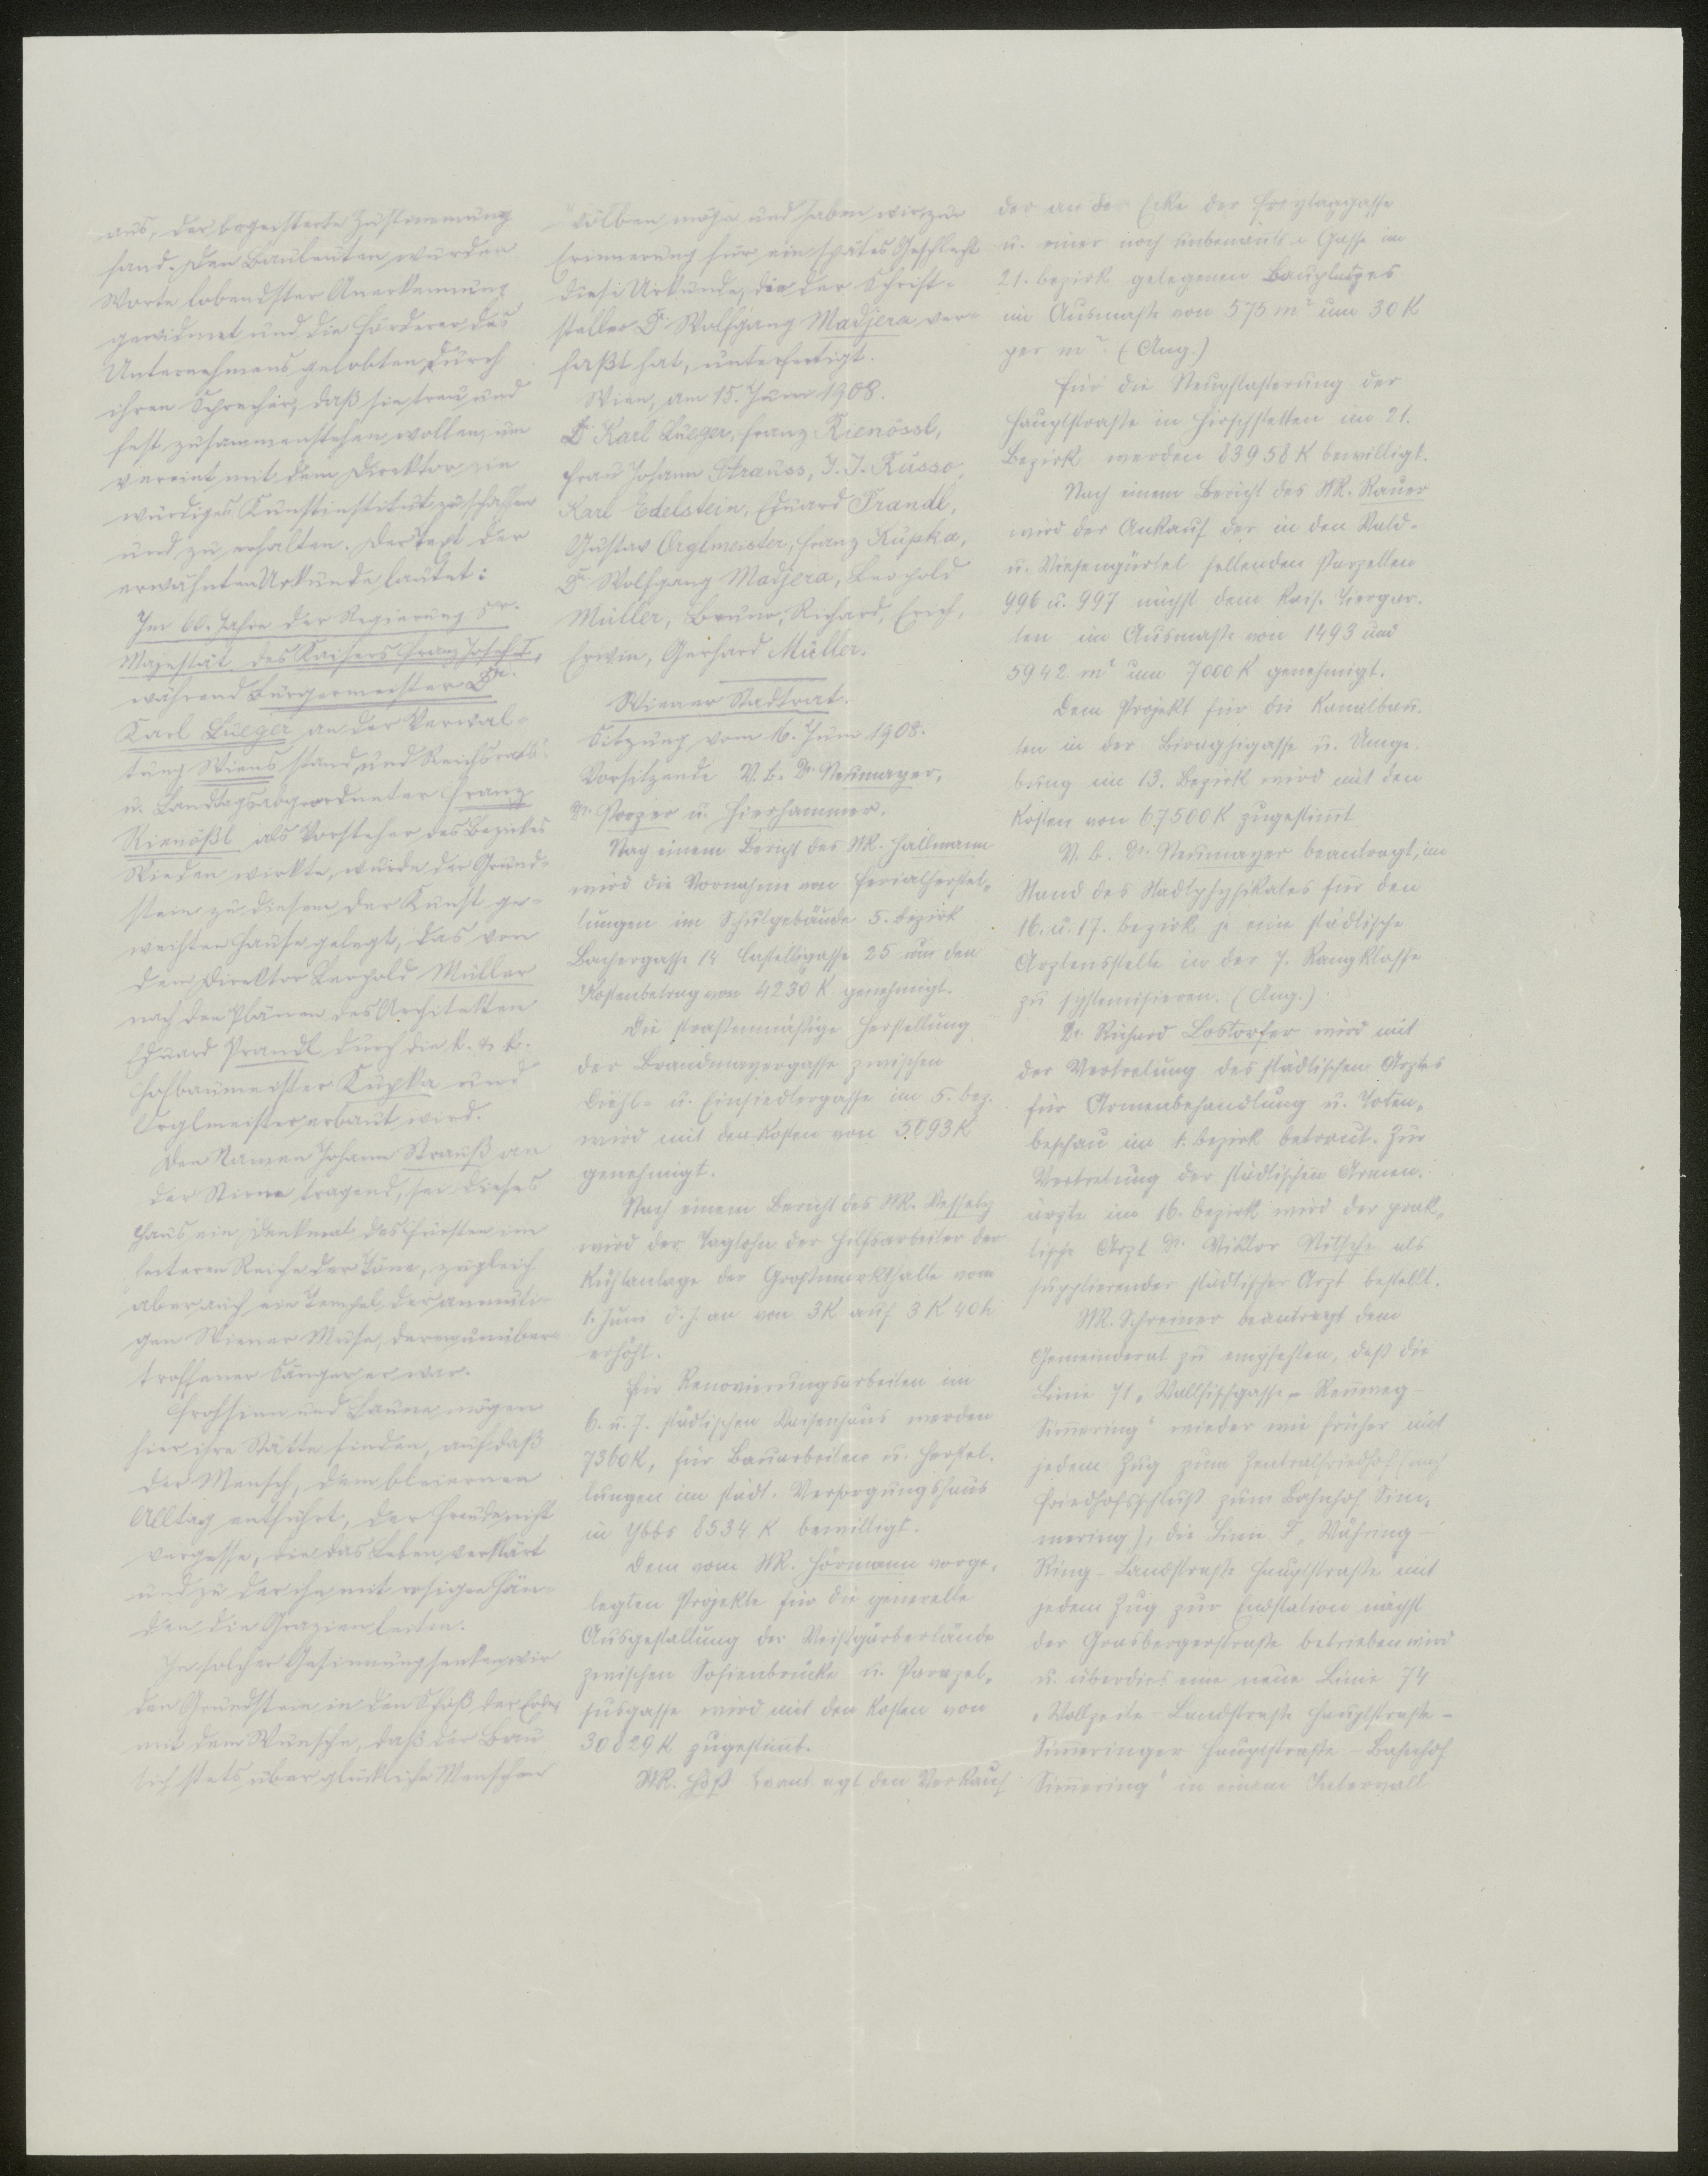 aus, der begeisterte Zustimmung
fand. Den Bauleuten wurden
Worte lobendster Anerkennung
gewidmet und die Förderer des
Unternehmens gelobten durch
ihren Sprecher, daß sie treu und
fest zusammenstehen wollen, um
vereint mit dem Direktor ein
würdiges Kunstinstitut zu schaffen
und zu erhalten. Der Text der
erwähnten Urkunde lautet:
Im 60. Jahre der Regierung Sr.
Majestät des Kaisers Franz Josef I.,
während Bürgermeister Dr.
Karl Lueger an der Verwal-
tung Wiens stand und Reichsrats-
u. Landtagsabgeordneter Franz
Rienößl als Vorsteher des Bezirkes
Wieden wirkte, wurde der Grund-
stein zu diesem der Kunst ge-
weihten Hause gelegt, das von
dem Direktor Leopold Müller
nach den Plänen des Architekten
Eduard Prandl durch die k. u. k.
Hofbaumeister Kupka und
Orglmeister erbaut wird.
Den Namen Johann Strauß an
der Stirne tragend, sei dieses
Haus ein Denkmal des Fürsten im
heiteren Reiche der Töne, zugleich
aber auch ein Tempel der anmuti-
gen Wiener Muse, deren unüber-
troffener Sänger er war.
Frohsinn und Laune mögen
hier ihre Stätte finden, auf daß
der Mensch, dem bleiernen
Alltag entführt, der Freude nicht
vergesse, die das Leben verklärt
und zu der ihn mit rosigen Hän-
den die Grazien leiten.
In solcher Gesinnung senken wir
den Grundstein in den Schoß der Erde
mit dem Wunsche, daß der Bau
sich stets über glückliche Menschen
wölben möge und haben wir zur
Erinnerung für ein spätes Geschlecht
diese Urkunde, die der Schrift-
steller Dr. Wolfgang Madjera ver-
faßt hat, unterfertigt.
Wien, am 15. Juni 1908.
Dr. Karl Lueger, Franz Rienössl,
Frau Johann Strauss, J. J. Russo,
Karl Edelstein, Eduard Prandl,
Gustav Orglmeister, Franz Kupka,
Dr. Wolfgang Madjera, Leopold
Müller, Bruno, Richard, Erich,
Erwin, Gerhard Müller.
Wiener Stadtrat.
Sitzung vom 16. Juni 1908.
Vorsitzende V. B. Dr. Neumayer,
Dr. Porzer u. Hierhammer.
Nach einem Bericht des StR. Hallmann
wird die Vornahme von Ferialherstel-
lungen im Schulgebäude 5. Bezirk
Bachergasse 14 Castelligasse 25 um den
Kostenbetrag von 4230 K genehmigt.
Die straßenmäßige Herstellung
der Brandmayergasse zwischen
Diehl- u. Einsiedlergasse im 5. Bez.
wird mit den Kosten von 5093 K
genehmigt.
Nach einem Bericht des StR. Wessely
wird der Taglohn der Hilfsarbeiter der
Kühlanlage der Großmarkthalle vom
1. Juni d. J. an von 3 K auf 3 K 40 h
erhöht.
Für Renovierungsarbeiten im
6. u. 7. städtischen Waisenhaus werden
7360 K, für Bauarbeiten u. Herstel-
lungen im städt. Versorgungshaus
in Ybbs 8534 K bewilligt.
Dem vom StR. Hörmann vorge-
legten Projekte für die generelle
Ausgestaltung der Weißgärberlände
zwischen Sofienbrücke u. Parazel-
susgasse wird mit den Kosten von
30829 K zugestimmt.
StR. Höß beantragt den Verkauf
des an der Ecke der Freytaggasse
u. einer noch unbenannten Gasse im
21. Bezirk gelegenen Bauplatzes
im Ausmaße von 575 m² um 30 K
per m². (Ang.)
Für die Neupflasterung der
Hauptstraße in Hirschstetten im 21.
Bezirk werden 83958 K bewilligt.
Nach einem Bericht des StR. Rauer
wird der Ankauf der in den Wald-
u. Wiesengürtel fallenden Parzellen
996 u. 997 nächst dem kais. Tiergar-
ten im Ausmaße von 1493 und
5942 m² um 7000 K genehmigt.
Dem Projekt für die Kanalbau-
ten in der Biraghigasse u. Umge-
bung im 13. Bezirk wird mit den
Kosten von 67500 K zugestimmt
V. B. Dr. Neumayer beantragt, im
Stand des Stadtphysikates für den
16. u. 17. Bezirk je eine städtische
Arztensstelle in der 7. Rangklasse
zu systemisieren. (Ang.)
Dr. Richard Lostorfer wird mit
der Vertretung des städtischen Arztes
für Armenbehandlung u. Toten-
beschau im 1. Bezirk betraut. Zur
Vertretung der städtischen Armen-
ärzte im 16. Bezirk wird der prak-
tische Arzt Dr. Viktor Nitsche als
supplierender städtischer Arzt bestellt.
StR. Schreiner beantragt dem
Gemeinderat zu empfehlen, daß die
Linie 71 „Wallfischgasse - Rennweg -
Simmering“ wieder wie früher mit
jedem Zug zum Zentralfriedhof (nach
Friedhofsschluß zum Bahnhof Sim-
mering), die Linie F „Währing -
Ring - Landstraße Hauptstraße mit
jedem Zug zur Endstation nächst
der Grasbergerstraße betrieben wird
u. überdies eine neue Linie 74
„Wollzeile - Landstraße Hauptstraße -
Simmeringer Hauptstraße - Bahnhof
Simmering“ in einem Intervall